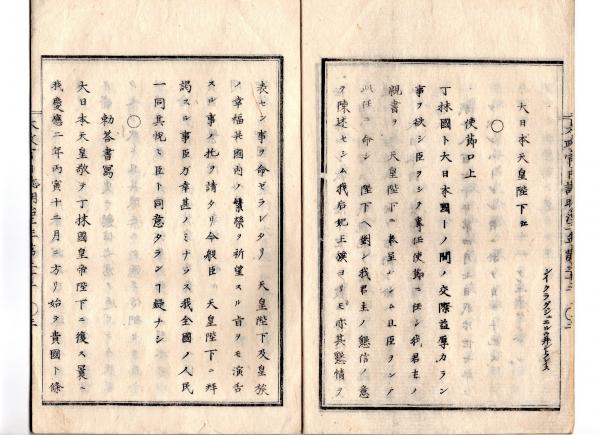 大日本天皇陛下ニ
○
使節口上
丁抹國ト大日本國トノ間ノ交際益厚カラン
事ヲ欲シ臣ヲシテ専任使節ニ任シ我君主ノ
親書ヲ 天皇陛下ニ奉呈セシム且臣ヲシテ
此任ニ命シ 陛下ヘ對シ我君主ノ懇信ノ意
ヲ陳述セシム我后妃王族ヨリモ亦其懇情ヲ
表セン事ヲ命ゼラレタリ 天皇陛下及皇族
ノ幸福其國内ノ繁榮ヲ祈望スル旨ヲモ演舌
スル事ヲ他ヲ請タリ今般臣 天皇陛下ニ拜
謁スル事臣万幸甚ノミナラス我全國ノ人民
一同其悦モ臣ト同意タラン丁疑ナシ
○
勅答書寫
大日本天皇敬テ丁抹國皇帝陛下ニ復ス曩ニ
我慶應二年丙寅十二月二方リ始テ貴國ト條